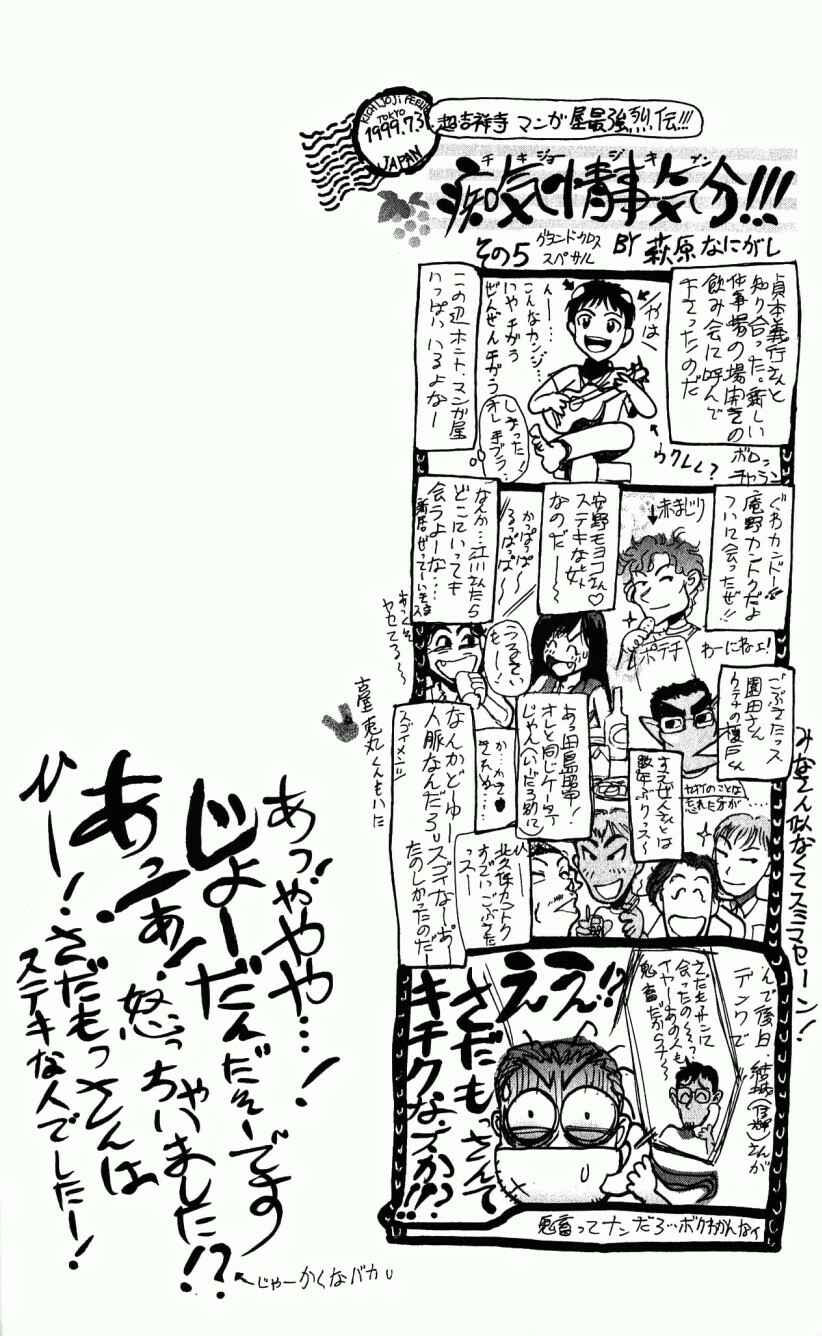 KICHIJOJI
TOKYO
1999.7.31
JAPAN
超吉祥寺 マンガ屋最強烈伝!!!
チキジョージキブン
痴気情事気分!!!
その5
グランドクロス
スペサル
BY 萩原なにがし
貞本義行さんと
知り合った。新しい
仕事場の場開きの
飲み会に呼んで
下さったのだ
ガはは
んー…
こんなカンジ…
いや チガう
ぜんぜんチガう
しまった!
オレ手ブラ…
ウクレレ?
ボロン
チャラン
この辺 ホント、マンガ屋
いっぱいいるよなー
ぐわカンドー!!
庵野カントクだよ
ついに会ったぜ!!
赤まじり
ポテチ
わーにねェ!
安野モヨコさん♡
ステキな女
なのだー
かっぱっぱー
るっぱっぱー
うるせいも!
なんか…江川さんたら
どこにいっても
会うよーな…
おっくそ
ヤセてる〜
ごぶさたっス
園田さん
ウチの榎戸くん
すえぜんさんとは
数年ぶりっス〜
忘れた方が…
あっ田島昭宇!
オレと同じケータイ
じゃん(いーどう別に)
か…かえ
北久保カントク
すごいごぶさた
っス―
なんかどーゆー
人脈なんだろ
スゴイなーあー
たのしかったのだー
スゴイメンツ
古屋兎丸くんもいた
みなさん似なくてスミマセーン!
んで後日、結城(信輝)さんが
デンワで
さだもっサンに
会ったのぐらっ
イヤーあの人も
鬼畜だからナ〜
ええ!?
さだもっさんて
キチクなスか!!?
鬼畜ってナンだろ…ボクわかんなィ
あっややや…!
じょーだんだそーです
あっあ! 怒っちゃいました!?
ひー! さだもっさんは
ステキな人でしたー!
じゃーかくなバカ